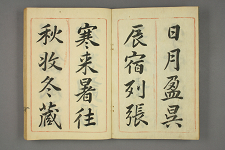 日月盈昃
辰宿列張
寒来暑往
秋收冬藏